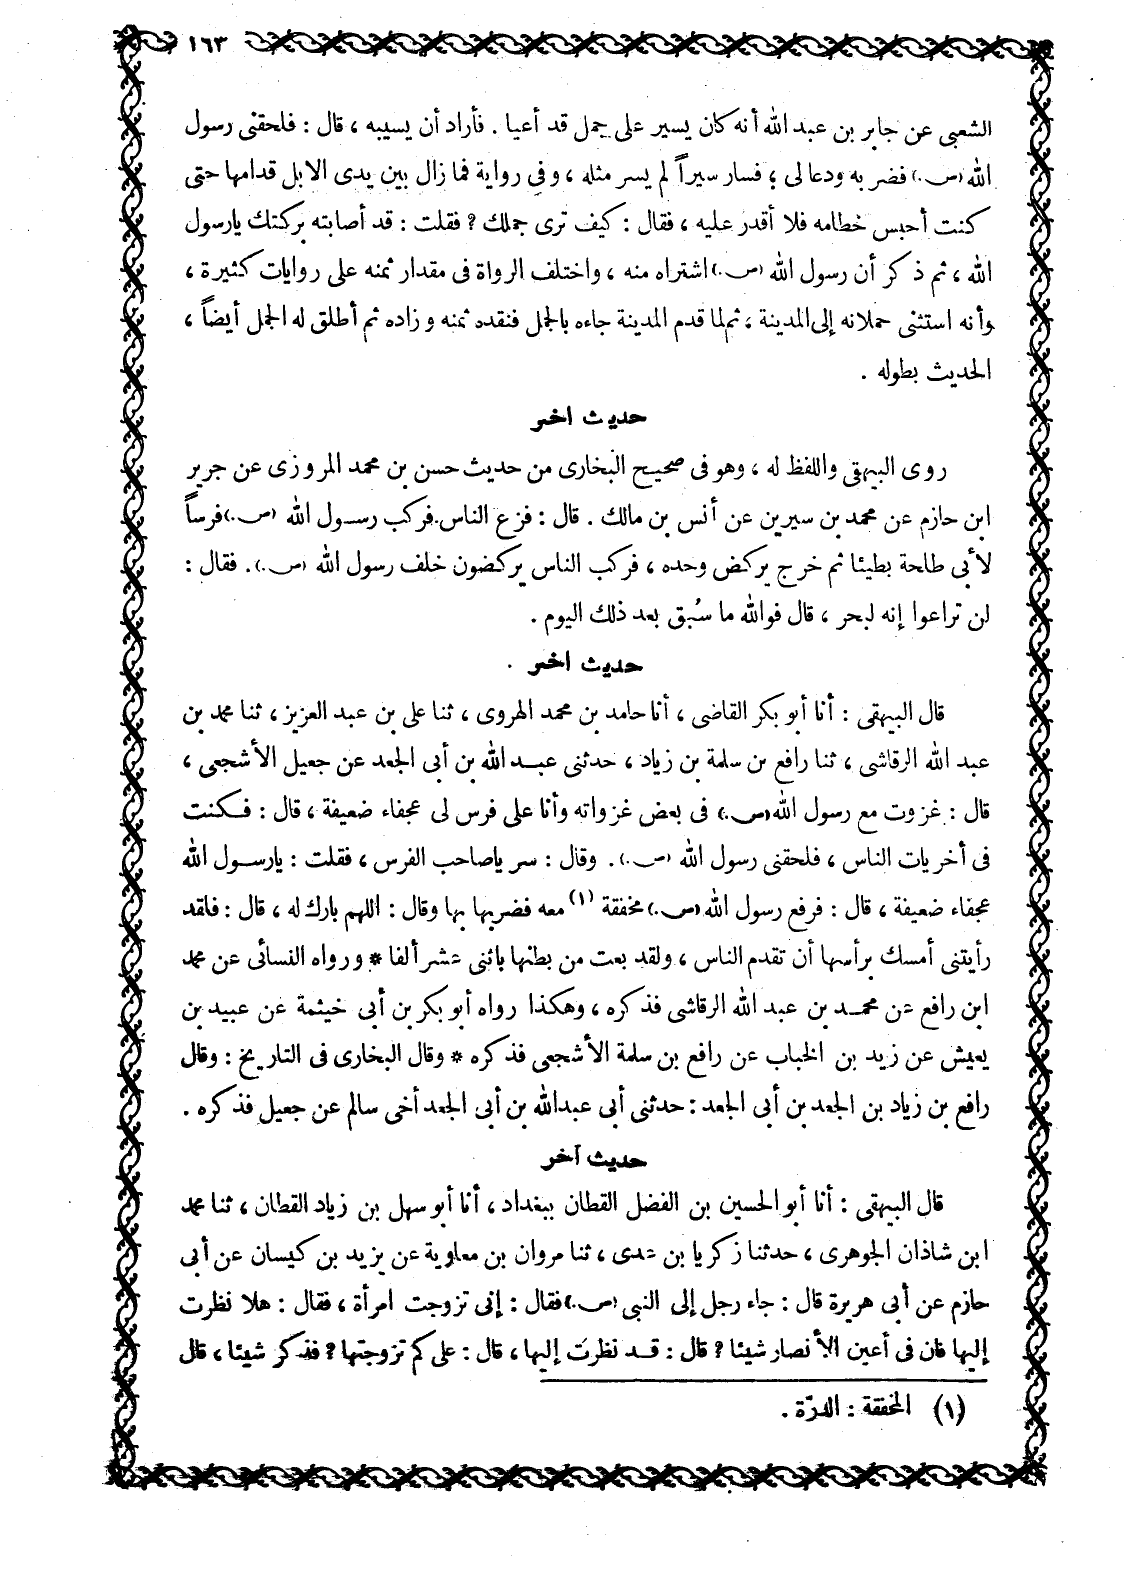 ١٦٣
الشعبى عن جابر بن عبد الله أنه كان يسير على جمل قد أعيا . فأراد أن يسيبه ، قال : فلحقنى رسول
الله (ص.) فضربه ودعا لى ؛ فسار سيراً لم يسر مثله ، وفى رواية فما زال بين يدى الابل قدامها حتى
كنت أحبس خطامه فلا أقدر عليه ، فقال : كيف ترى جملك ? فقلت : قد أصابته بركتك يارسول
الله ، ثم ذكر أن رسول الله (ص.) اشتراه منه ، واختلف الرواة فى مقدار ثمنه على روايات كثيرة ،
وأنه استثنى حملانه إلى المدينة ، ثم لما قدم المدينة جاءه بالجمل فنقده ثمنه وزاده ثم أطلق له الجمل أيضاً ،
الحديث بطوله .
حديث آخر
روى البيهقى واللفظ له ، وهو فى صحيح البخارى من حديث حسن بن محمد المروزى عن جرير
ابن حازم عن محمد بن سيرين عن أنس بن مالك . قال : فزع الناس فركب رسول الله (ص.) فرساً
لأبى طلحة بطيئا ثم خرج يركض وحده ، فركب الناس يركضون خلف رسول الله (ص.) . فقال :
لن تراعوا إنه لبحر ، قال فوالله ما سُبق بعد ذلك اليوم .
حديث آخر
قال البيهقى : أنا أبو بكر القاضى ، أنا حامد بن محمد الهروى ، ثنا على بن عبد العزيز ، ثنا محمد بن
عبد الله الرقاشى ، ثنا رافع بن سلمة بن زياد ، حدثنى عبد الله بن أبى الجعد عن جعيل الأشجعى ،
قال : غزوت مع رسول الله (ص.) فى بعض غزواته وأنا على فرس لى عجفاء ضعيفة ، قال : فكنت
فى أخريات الناس ، فلحقنى رسول الله (ص.) . وقال : سر ياصاحب الفرس ، فقلت : يارسول الله
عجفاء ضعيفة ، قال : فرفع رسول الله (ص.) مخفقة (١) معه فضربها بها وقال : اللهم بارك له ، قال : فلقد
رأيتنى أمسك برأسها أن تقدم الناس ، ولقد بعت من بطنها باثنى عشر ألفا * ورواه النسائى عن محمد
ابن رافع عن محمد بن عبد الله الرقاشى فذكره ، وهكذا رواه أبو بكر بن أبى خيثمة عن عبيد بن
يعيش عن زيد بن الخباب عن رافع بن سلمة الأشجعى فذكره * وقال البخارى فى التاريخ : وقال
رافع بن زياد بن الجعد بن أبى الجعد : حدثنى أبى عبدالله بن أبى الجعد أخى سالم عن جعيل فذكره .
حديث آخر
قال البيهقى : أنا أبو الحسين بن الفضل القطان ببغداد ، أنا أبو سهل بن زياد القطان ، ثنا محمد
ابن شاذان الجوهرى ، حدثنا زكريا بن عدى ، ثنا مروان بن معاوية عن يزيد بن كيسان عن أبى
حازم عن أبى هريرة قال : جاء رجل إلى النبى (ص.) فقال : إنى تزوجت امرأة ، فقال : هلا نظرت
إليها فان فى أعين الأنصار شيئا ? قال : قد نظرت إليها ، قال : على كم تزوجتها ? فذكر شيئا ، قال
(١) المخفقة : الدرّة .